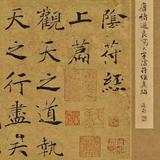 唐褚遂良寫大字陰符經真跡
陰符經
上篇
觀天之道
天之行盡矣